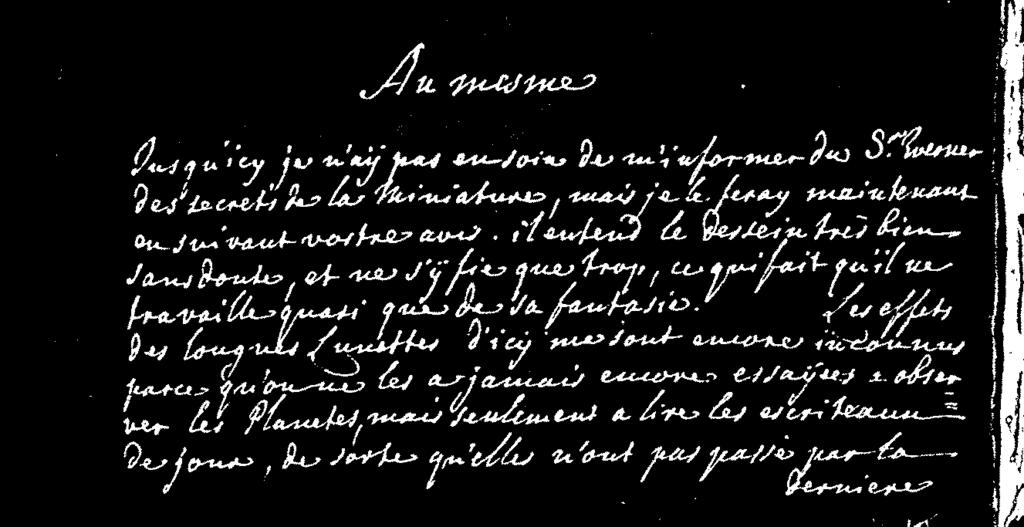 Au mesme
Jusqu'icy je n'aÿ pas eu soin de m'informer du S.r Werner
des secrets de la Miniature, mais je le feray maintenant
en suivant vostre avis. il entend le dessein très bien
sans doute, et ne s'ÿ fie que trop, ce qui fait qu'il ne
travaille quasi que de sa fantasie. Les effets
des longues Lunettes d'icy me sont encore inconnus
parce qu'on ne les a jamais encore essaÿees a obser
ver les Planetes, mais seulement a lire les escriteaux
de jour, de sorte qu'elles n'ont pas passé par la
derniere